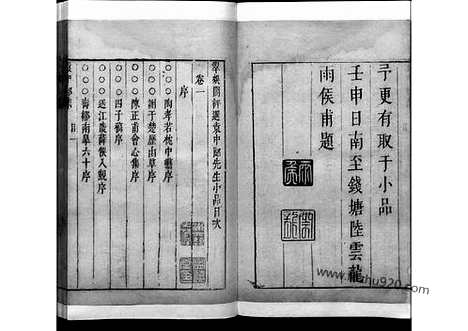 予更有取于小品
壬申日南至錢塘陸雲龍
雨侯甫題
翠娛閣評選袁中郎先生小品目次
卷一
序
○○○陶孝若枕中囈序
○○○謝于楚歷山草序
○○○陳正甫會心集序
○○○四子稿序
○○○送江陵薛侯入覲序
○○○壽鄒南皋六十序